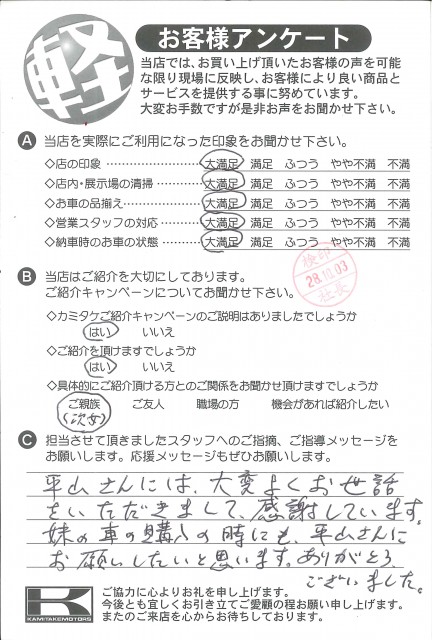 軽
お客様アンケート
当店では、お買い上げ頂いたお客様の声を可能
な限り現場に反映し、お客様により良い商品と
サービスを提供する事に努めています。
大変お手数ですが是非お声をお聞かせ下さい。
A 当店を実際にご利用になった印象をお聞かせ下さい。
◇店の印象 ………………… 大満足 満足 ふつう やや不満 不満
◇店内・展示場の清掃 ………… 大満足 満足 ふつう やや不満 不満
◇お車の品揃え ……………… 大満足 満足 ふつう やや不満 不満
◇営業スタッフの対応 ………… 大満足 満足 ふつう やや不満 不満
◇納車時のお車の状態 ………… 大満足 満足 ふつう やや不満 不満
検印
28.10.03
社長
B 当店はご紹介を大切にしております。
ご紹介キャンペーンについてお聞かせ下さい。
◇カミタケご紹介キャンペーンのご説明はありましたでしょうか
はい いいえ
◇ご紹介を頂けますでしょうか
はい いいえ
◇具体的にご紹介頂ける方とのご関係をお聞かせ頂けますでしょうか
ご親族 ご友人 職場の方 機会があれば紹介したい
(次女)
C 担当させて頂きましたスタッフへのご指摘、ご指導メッセージを
お願いします。応援メッセージもぜひお願いします。
平山さんには、大変よくお世話
をいただきまして、感謝しています。
妹の車の購入の時にも、平山さんに
お願いしたいと思います。ありがとう
ございました。
K
KAMITAKEMOTORS
ご協力に心よりお礼を申し上げます。
今後とも宜しくお引き立てご愛顧の程お願い申し上げます。
またのご来店を心からお待ちしております。